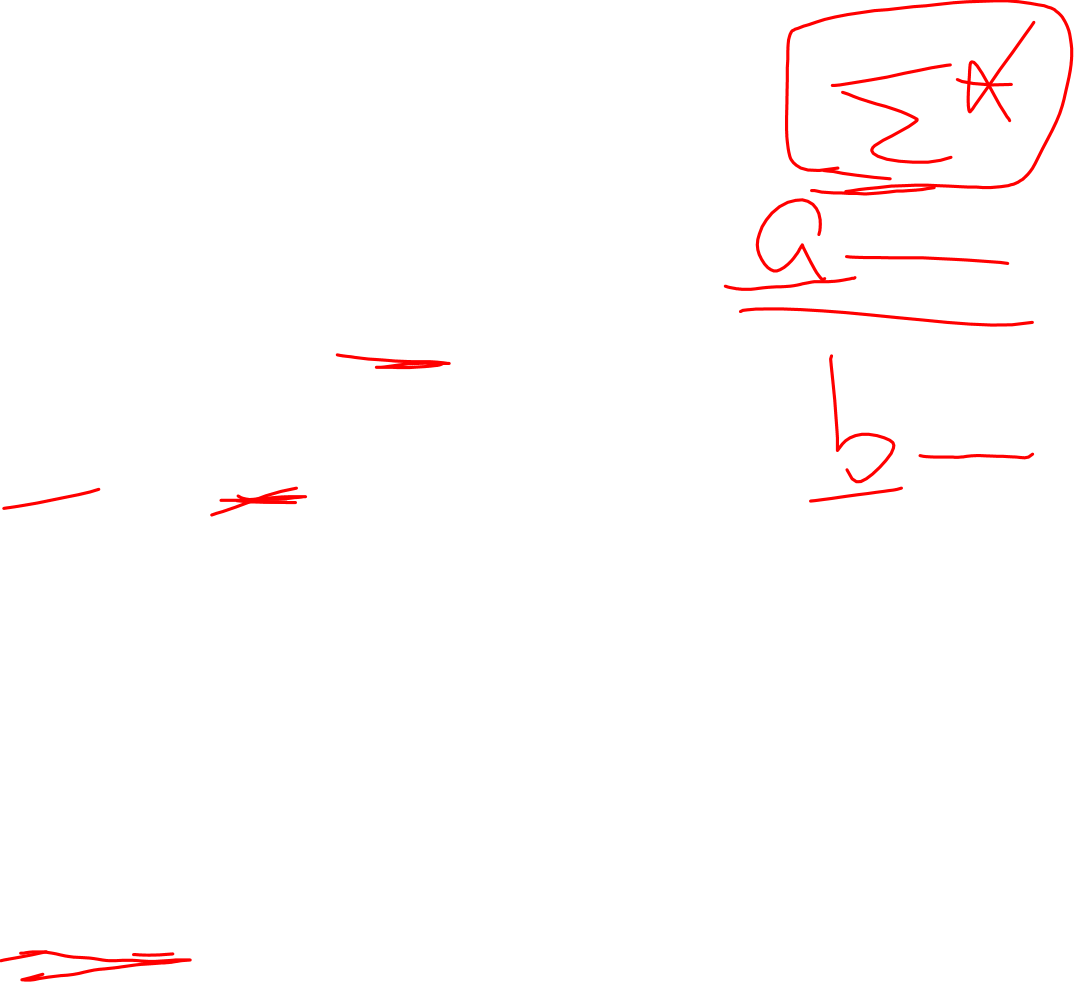 Σ*
a —
b —